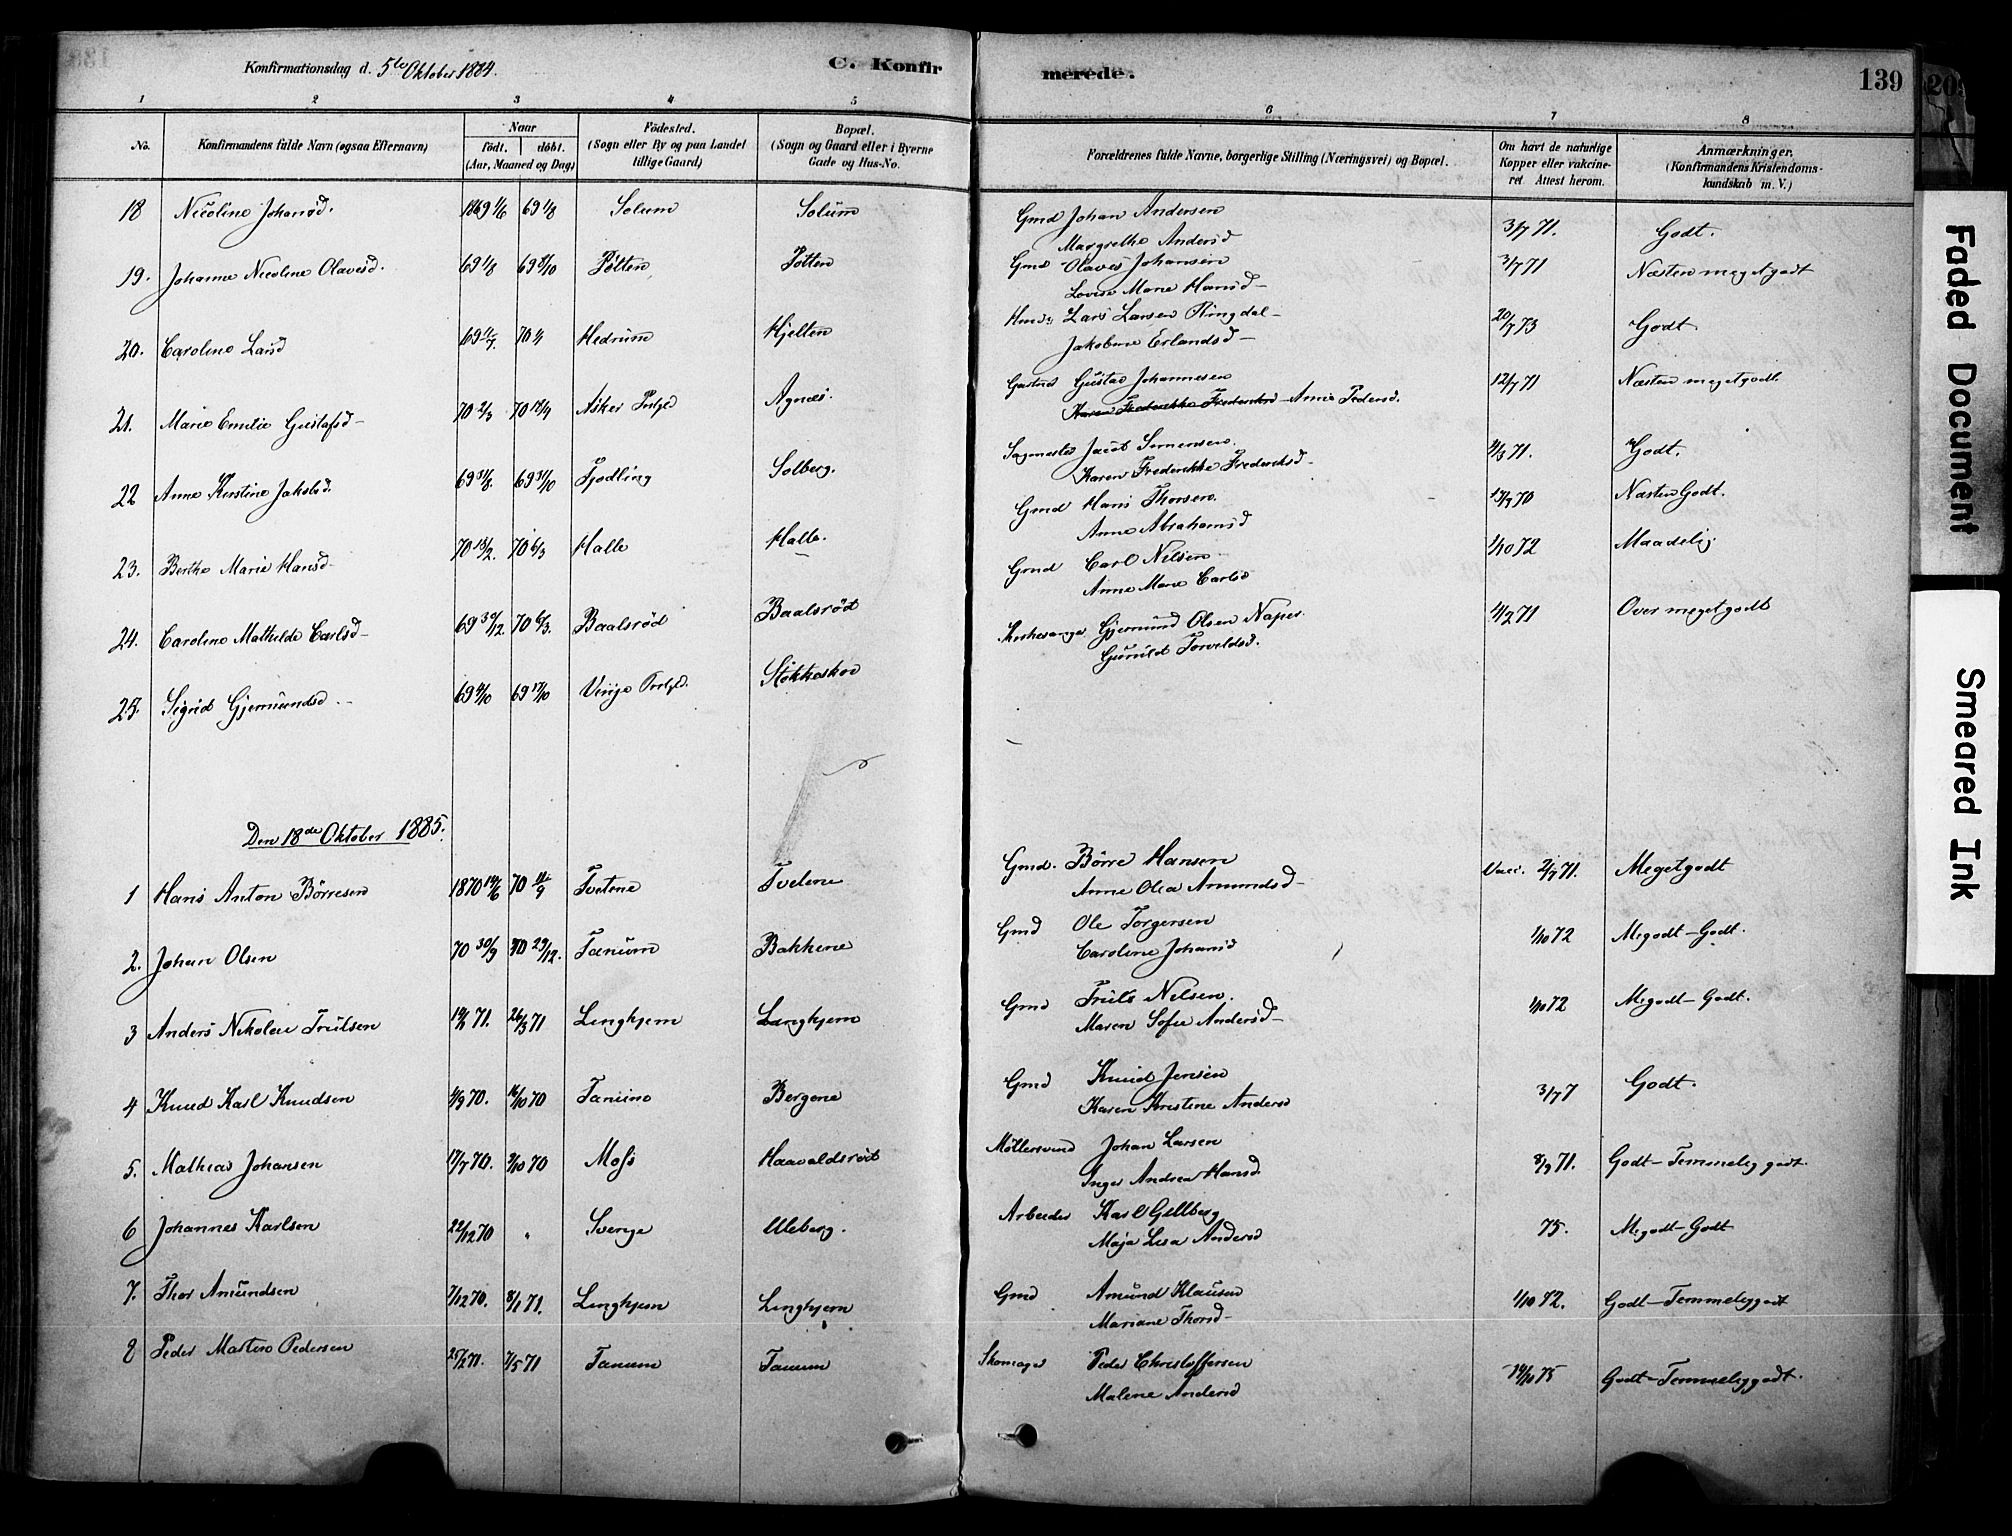 Konfirmationsdag d. 5te Oktober 1884.
C. Konfirmerede.
139
1 2 3 4 5 6 7 8
No. Konfirmandens fulde Navn (ogsaa Efternavn) Naar födt. döbt. (Aar, Maaned og Dag) Födested. (Sogn eller By og paa Landet tillige Gaard) Bopæl. (Sogn og Gaard eller i Byerne Gade og Hus-No. Forældrenes fulde Navne, borgerlige Stilling (Næringsvei) og Bopæl. Om havt de naturlige Kopper eller vakcineret. Attest herom. Anmærkninger. (Konfirmandens Kristendomskundskab m. V.)
18 Nicoline Johansd. 1869 1/6 69 1/8 Solum Solum Gmd Johan Andersen 3/7 71. Godt.
Margrethe Andersd
19. Johanne Nicoline Olavesd. 69 1/8 69 3/10 Pötten Pötten Gmd Olaves Johansen 3/7 71 Næsten megetgodt
Lovise Marie Hansd
20. Caroline Larsd 69 11/7. 70 Hedrum Hjelten Hmd. Lars Larsen Ringdal 20/7 73 Godt
Jakobine Erlandsd
21. Marie Emilie Gustafsd 70 2/3 70 18/4 Asker Prstgd Agnæs. Gartner Gustav Johannesen 12/7 71 Næsten megetgodt
Karen Frederikke Frederiksd Annie Pedersd.
22 Anne Kirstine Jakobsd. 69 31/8. 69 31/10 Fjodling Solberg. Sagmester Jacob Simensen. 71. Godt.
Karen Frederikke Frederiksd.
23. Berthe Marie Hansd 70 13/2. 70 6/3 Halle Halle. Gmd Hans Thorsen. 13/7 70 Næsten Godt.
Anne Abrahamsd
24. Caroline Mathilde Carlsd 69 30/12. 70 6/3. Baalsröd Baalsröd Gmd Carl Nilsen 1/10 72 Maadelig.
Anne Marie Carlsd
25. Sigrid Gjermundsd 69 4/10 69 17/10 Vinje Prstgd. Stokkeskov Kirkesanger Gjermund Olsen Naper. 71 Over megetgodt
Gunild Torvildsd.
Den 18de Oktober 1885.
1 Hans Anton Börresen 1870 14/6 70 11/9 Tvetene Tvetene Gmd. Börre Hansen Vacc. 2/7 71. Megetgodt
Anne Olea Amundsd
2. Johan Olsen 70 30/9 70 29/12. Tanum Bakkene Gmd Ole Torgersen 1/10 72 Megodt-Godt.
Caroline Johansd
3 Anders Nikolai Trulsen 71. 26/3 71 Linghjem Langhjem Gmd Truls Nelsen. 1/10 72 Megodt-Godt.
Maren Sofie Andersd
4 Knud Karl Knudsen 4/9 70. 16/10 70 Tanum Bergene Gmd Knud Jensen 3/7 7 Godt.
Karen Kristine Andersd
5. Mathias Johansen 17/7 70. 2/10 70 Moss Haavaldsröd Möllersvend Johan Larsen 8/9 71. Godt-Temmelig godt.
Inger Andrea Hansd.
6 Johannes Karlsen 22/12 70 " Sverige Uleberg. Arbeider Karl Gellberg 75. Megodt-Godt
Maja Lisa Andersd
7. Thor Amundsen 7/12 70. 8/1 71. Linghjem Linghjem Gmd Amund Klausen 1/10 72. Godt-Temmeliggodt
Mariane Thorsd
8 Peder Martin Pedersen 25/2 71. 7/5 71 Tanum Tanum Skomager Peder Christoffersen 14/10 75 Godt-Temmeliggodt.
Malene Andersd
Faded Document
Smeared Ink